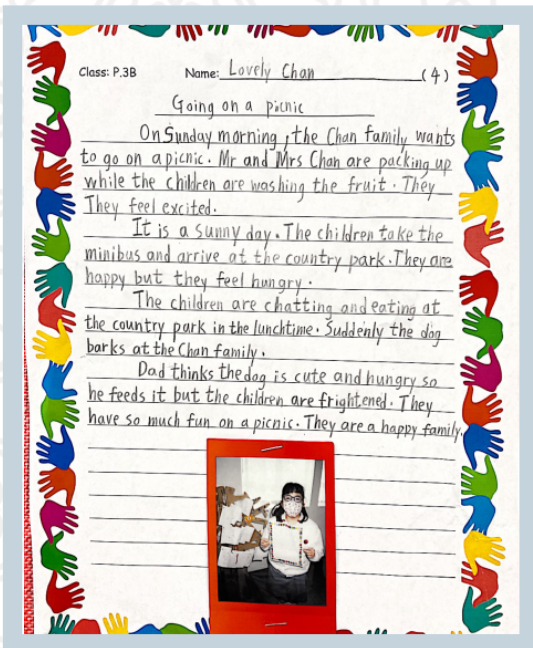 Class: P.3B Name: Lovely Chan (4)
Going on a picnic
On Sunday morning, the Chan family wants
to go on a picnic. Mr and Mrs Chan are packing up
while the children are washing the fruit. They
They feel excited.
It is a sunny day. The children take the
minibus and arrive at the country park. They are
happy but they feel hungry.
The children are chatting and eating at
the country park in the lunchtime. Suddenly the dog
barks at the Chan family.
Dad thinks the dog is cute and hungry so
he feeds it but the children are frightened. They
have so much fun on a picnic. They are a happy family.